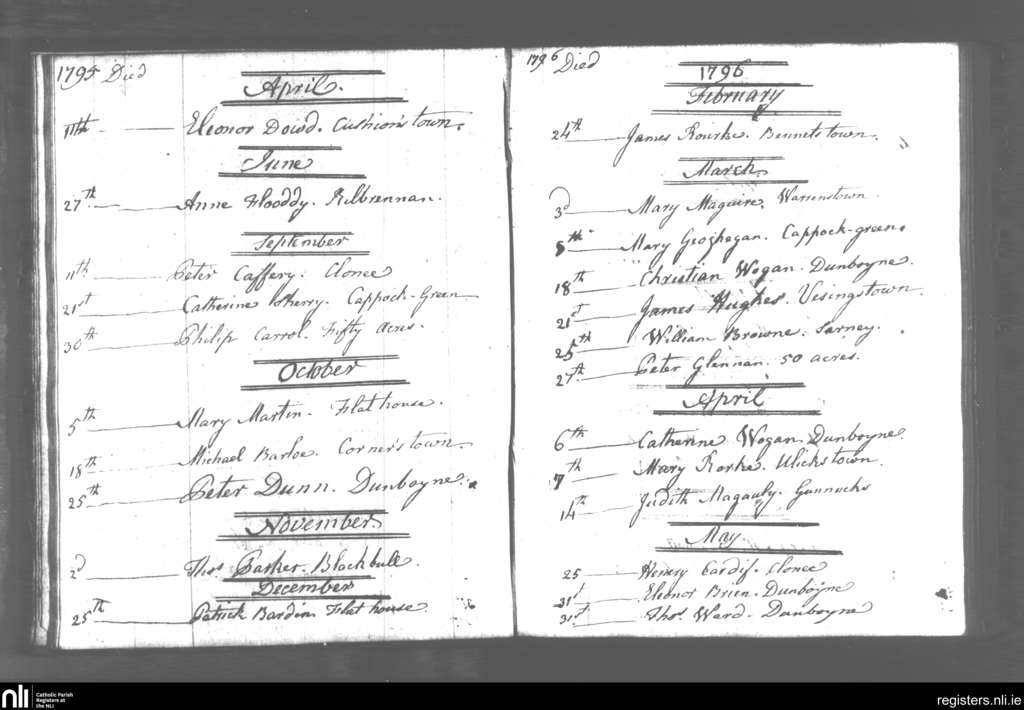 1795 Died
April.
11th Eleonor Dowd. Cushion's town.
June
27th Anne Hoddy. Kilbrennan.
September
11th Peter Caffery. Clonee
21st Catherine Sherry. Cappock-Green
30th Philip Carrol. Fifty Acres.
October
5th Mary Martin. Flat house.
18th Michael Barloe. Corner's town
25th Peter Dunn. Dunboyne.
November
2d Thos Parker. Blackbull.
December
25th Patrick Bardin. Flat house.
1796 Died
1796
February
24th James Rourke. Bennetstown.
March
3d Mary Maguire. Warrenstown
5th Mary Geoghegan. Cappock-green.
18th Christian Wogan. Dunboyne.
21st James Hughes. Vesingstown.
25th William Browne. Sarney.
27th Peter Glennan. 50 acres.
April
6th Catherine Wogan. Dunboyne.
7th Mary Rorke. Ulickstown.
14th Judith Magauly. Gunnocks
May
25 Henery Cardif. Clonee
31st Eleonor Brien. Dunboyne
31st Thos Ward. Dunboyne
nli Catholic Parish
Registers at
the NLI
registers.nli.ie